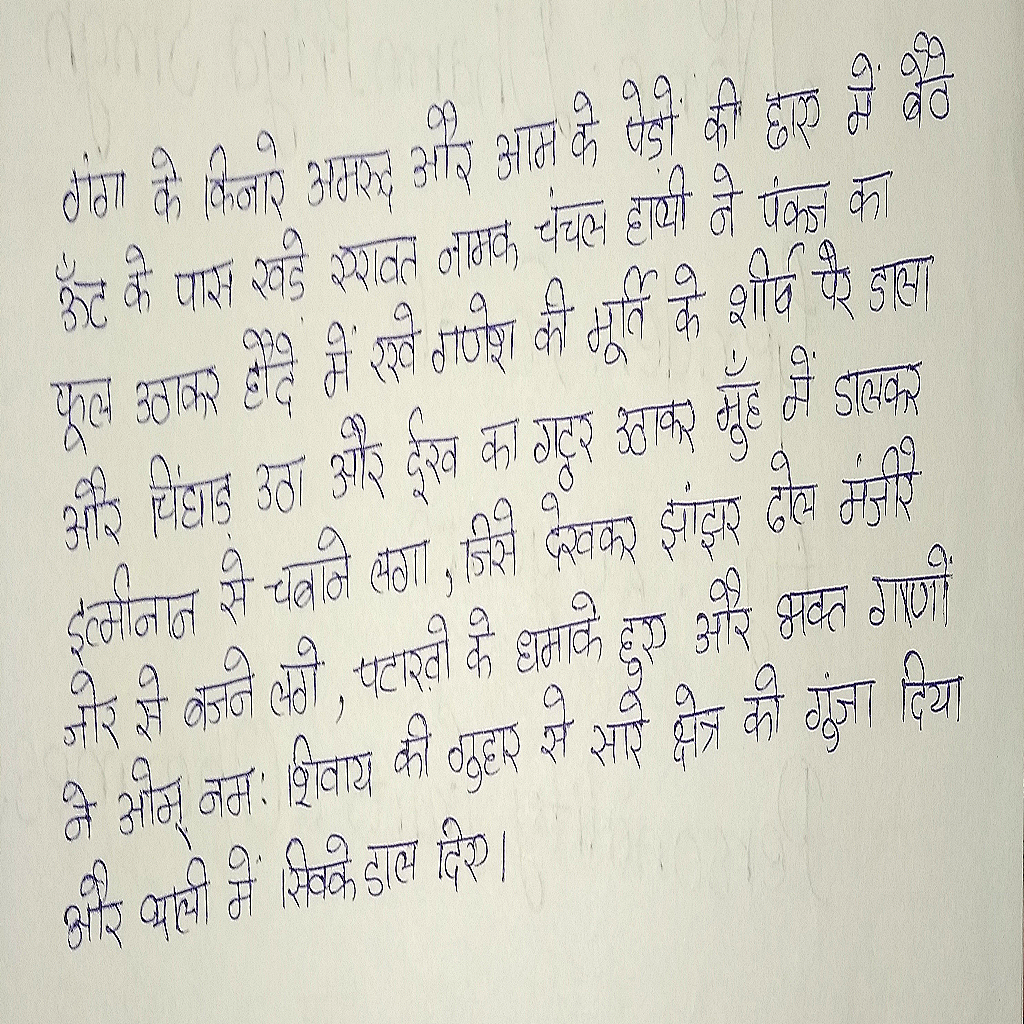 गंगा के किनारे अमरूद और आम के पेड़ों की छाए में बैठे
ऊँट के पास खड़े एरावत नामक चंचल हाथी ने पंकज का
फूल उठाकर हौदे में रखे गणेश की मूर्ति के शीर्ष पैर डाला
और चिंघाड़ उठा और ईख का गट्ठर उठाकर मुँह में डालकर
इत्मीनान से चबाने लगा, जिसे देखकर झांझर ढोल मंजीरे
जोर से बजने लगे, पटाख़ो के धमाके हुए और भक्त गाणों
ने ओम् नमः शिवाय की गुहार से सारे क्षेत्र को गुंजा दिया
और थाली में सिक्के डाल दिए।